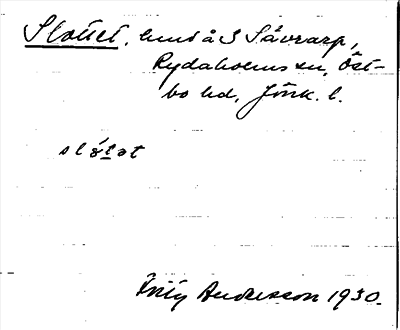 Slottet, hmd å S Sävrarp,
Rydaholms sn, Öst-
bo hd, Jönk. l.
slótət
Andersson 1930.